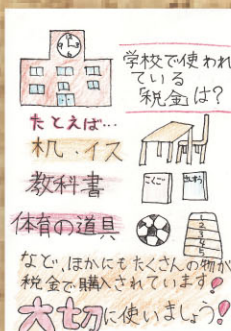 学校で使われ
ている
「税金」は？
たとえば…
机・イス
教科書
こくご
さんすう
体育の道具
1
2
3
4
など、ほかにもたくさんの物が
税金で購入されています！
大切に使いましょう！